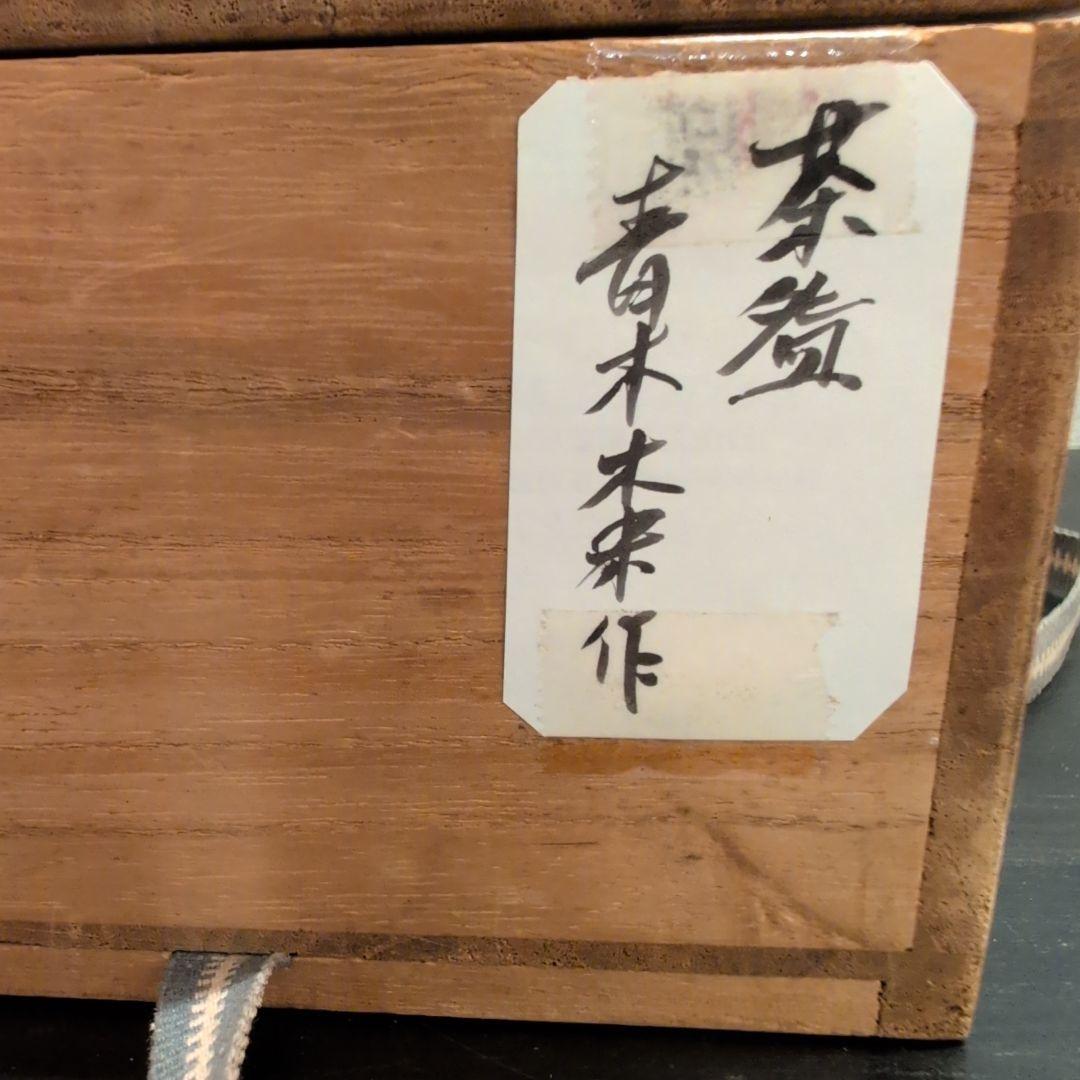 茶盌
青木木米作